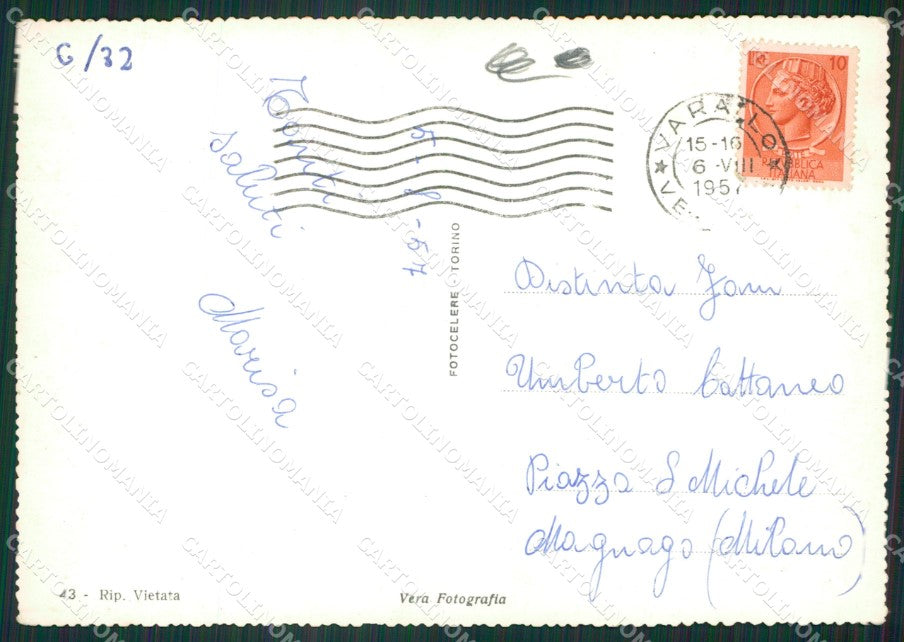 G/32
Tanti
saluti
5-8-57
Marisa
FOTOCELERE TORINO
10
REPUBBLICA
ITALIANA
VARALLO
15-16
6-VIII
1957
Distinta Fam
Umberto Cattaneo
Piazza S Michele
Magnago (Milano)
43 - Rip. Vietata
Vera Fotografia
CARTOLINOMANIA